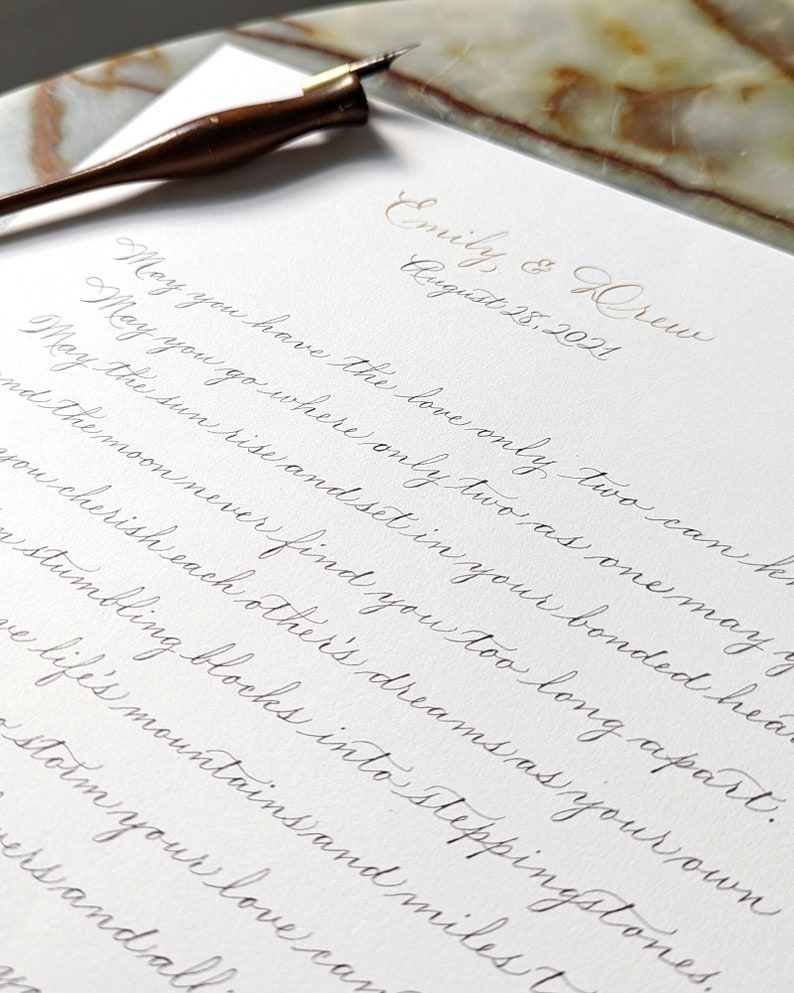 Emily & Drew
August 28, 2021
May you have the love only two can
May you go where only two as one may
May the sun rise and set in your bonded
and the moon never find you too long apart.
you cherish each other's dreams as your own
stumbling blocks into steppingstones.
life's mountains and miles
storm your love can
and all